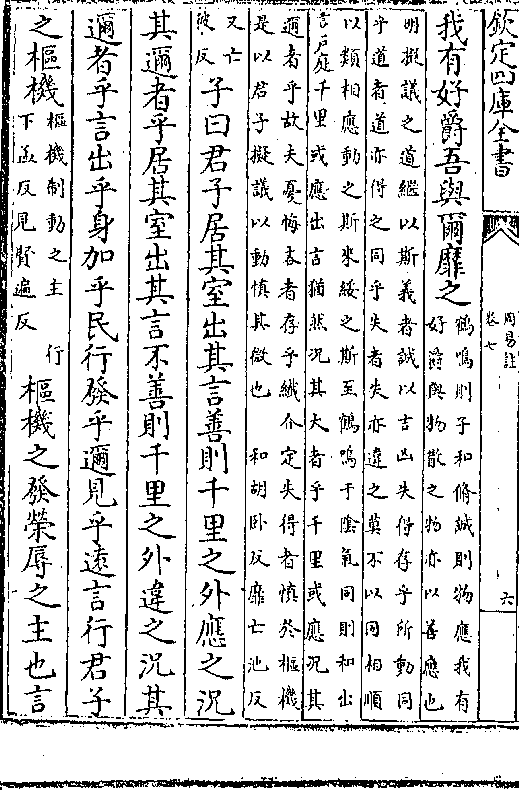 欽定四庫全書
周易註
卷七
六
我有好爵吾與爾靡之
鶴鳴則子和脩誠則物應我有
好爵與物散之物亦以善應也
明擬議之道繼以斯義者誠以吉凶失得存乎所動同
乎道者道亦得之同乎失者失亦違之莫不以同相順
以類相應動之斯來綏之斯至鶴鳴于陰氣同則和出
言戶庭千里或應出言猶然況其大者乎千里或應況其
邇者乎故夫憂悔吝者存乎纎介定失得者慎於樞機
是以君子擬議以動慎其微也 和胡卧反靡亡池反
又亡
彼反
子曰君子居其室出其言善則千里之外應之況
其邇者乎居其室出其言不善則千里之外違之況其
邇者乎言出乎身加乎民行發乎邇見乎遠言行君子
之樞機
樞機制動之主 行
下孟反見賢遍反
樞機之發榮辱之主也言